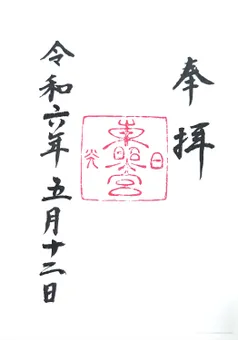 奉拝
日光
東照宮
令和六年五月十二日